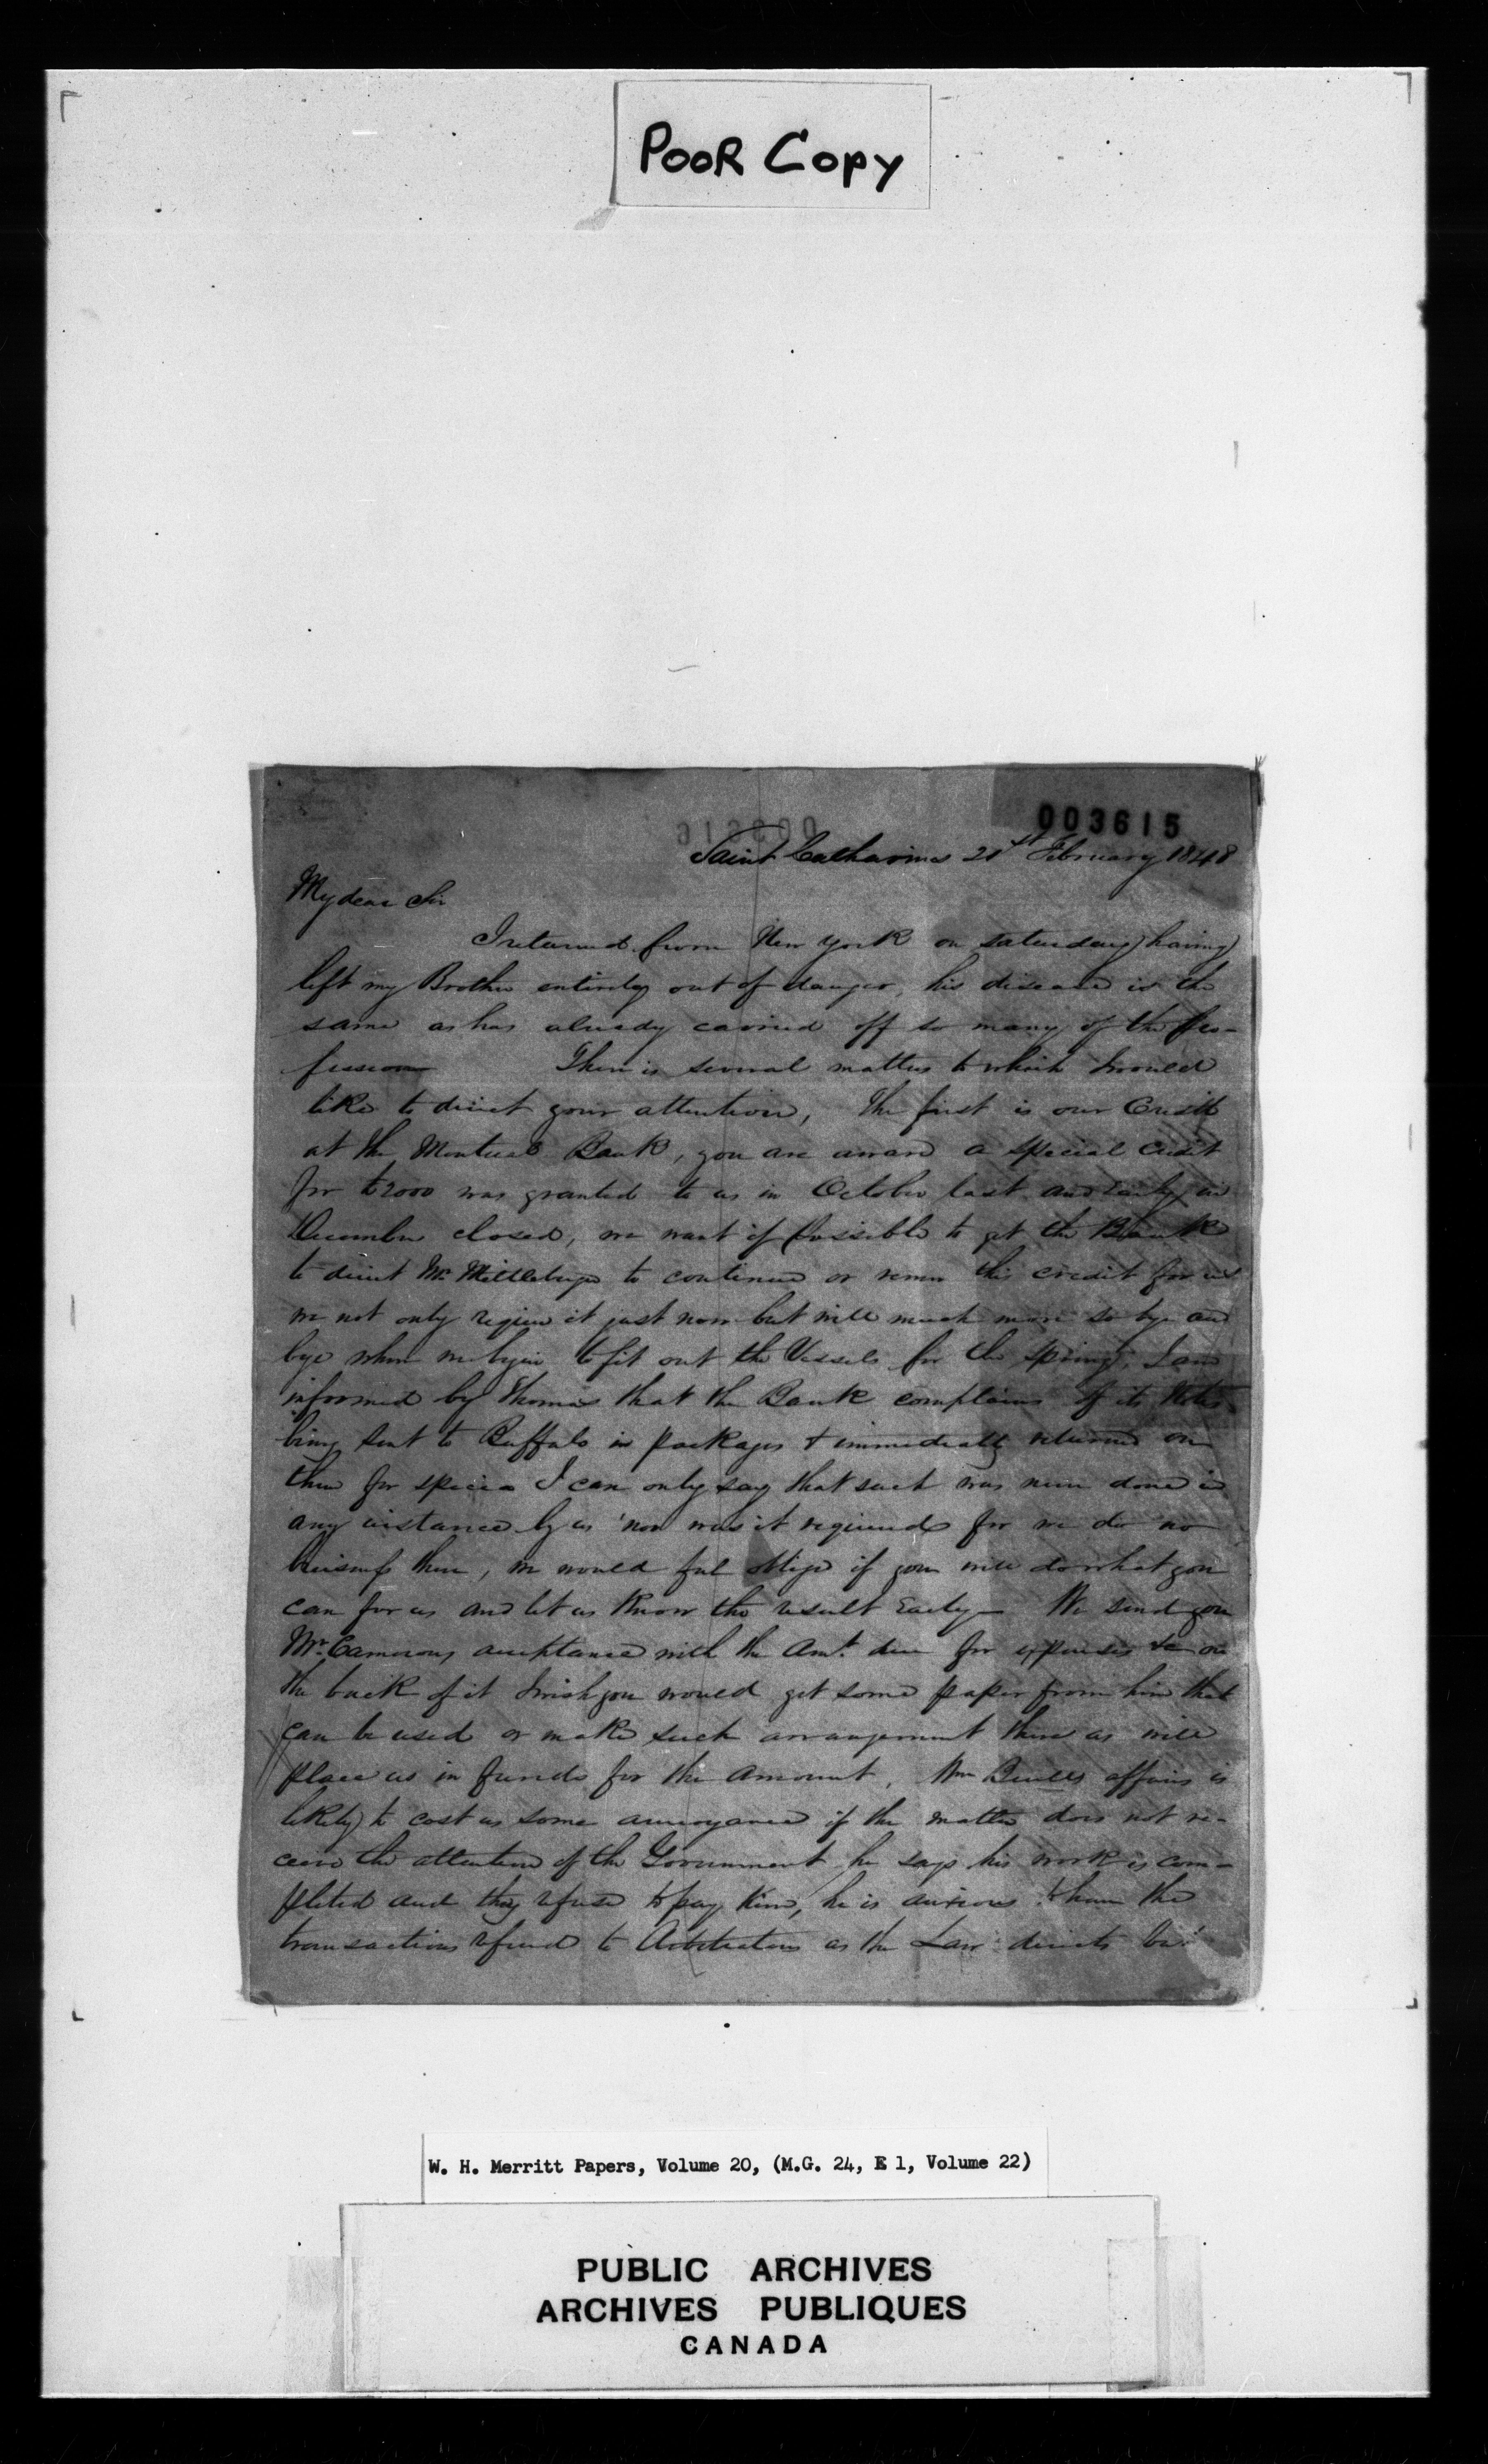 POOR COPY
003615
Saint Catharines 21st February 1848
My dear Sir
I returned from New York on Saturday having
left my Brother entirely out of danger, his disease is the
same as has already carried off so many of the pro-
fession There is several matters to which I would
like to direct your attention, The first is our Credit
at the Montreal Bank, you are aware a special Credit
for £2000 was granted to us in October last and early in
December closed, we want if possible to get the Bank
to direct Mr. to continue or renew this credit for us
we not only require it just now but will much more so bye and
bye when we begin to fit out the Vessels for the spring, I am
informed by Thomas that the Bank complains of its Notes
being sent to Buffalo in packages & immediately returned on
them for specie I can only say that such was never done in
any instance by us nor was it required for we do no
business there, we would feel oblige if you will do what you
can for us and let us know the result Early — We send you
Mr. Camerons acceptance with the Amt. due for expenses &c on
the back of it I wish you would get some paper from him that
can be used or make such arrangement there as will
place us in funds for the amount, Wm affairs is
likely to cost us some annoyance if the matter does not re-
ceive the attention of the Government he says his work is com-
pleted and they refuse to pay him, he is anxious to have the
transactions refered to Arbitrators as the Law directs
W. H. Merritt Papers, Volume 20, (M.G. 24, E 1, Volume 22)
PUBLIC ARCHIVES
ARCHIVES PUBLIQUES
CANADA